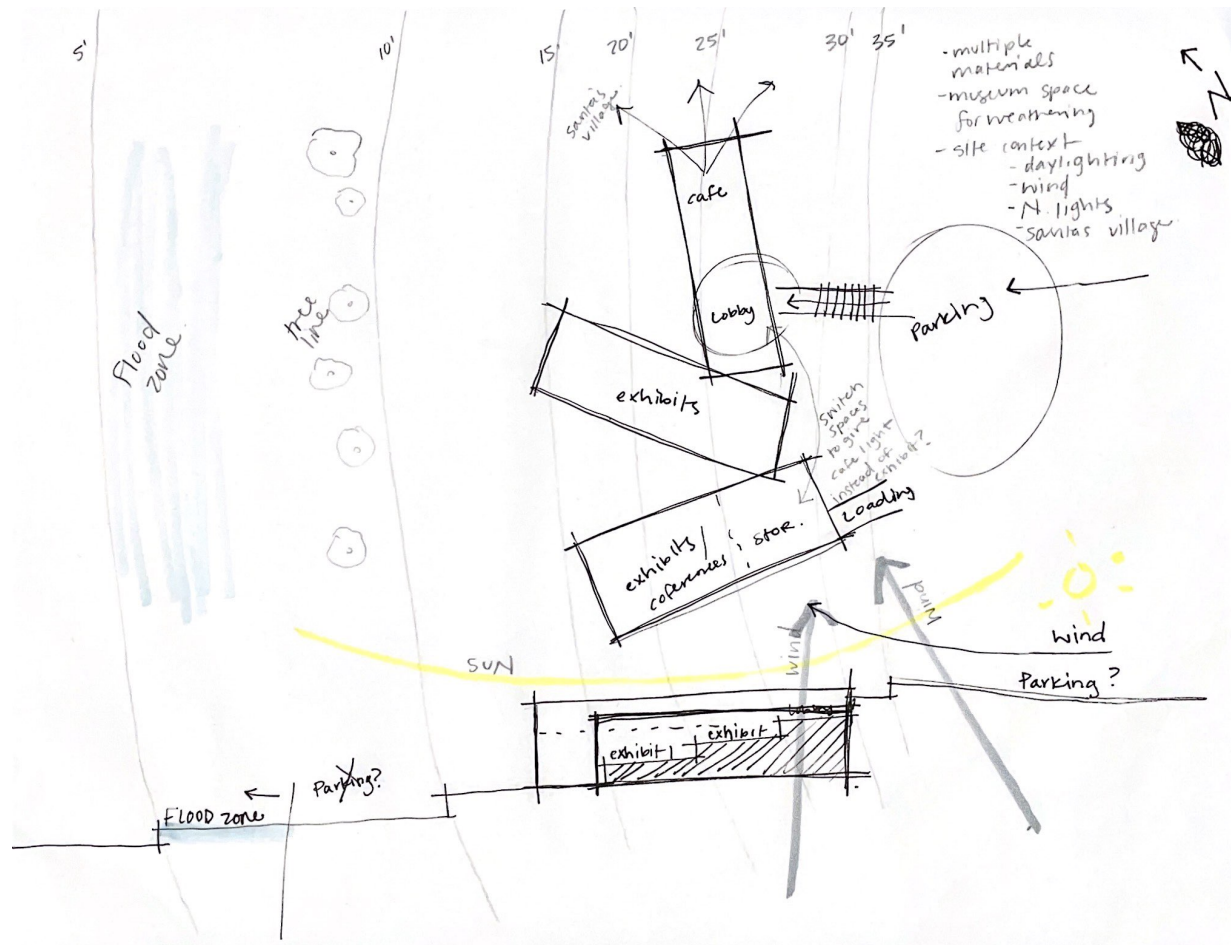 5'
10'
15'
20'
25'
30'
35'
- multiple
materials
- museum space
for weathering
- site context
- daylighting
- wind
- N. lights
- santas village
N
santa's
village
cafe
Lobby
Parking
Flood
zone
tree
line
exhibits
switch
spaces
to give
cafe light
instead of
exhibit?
Loading
exhibits/
coferences
stor.
wind
wind
wind
SUN
Parking?
exhibit
exhibit
Parking?
FLOOD zone